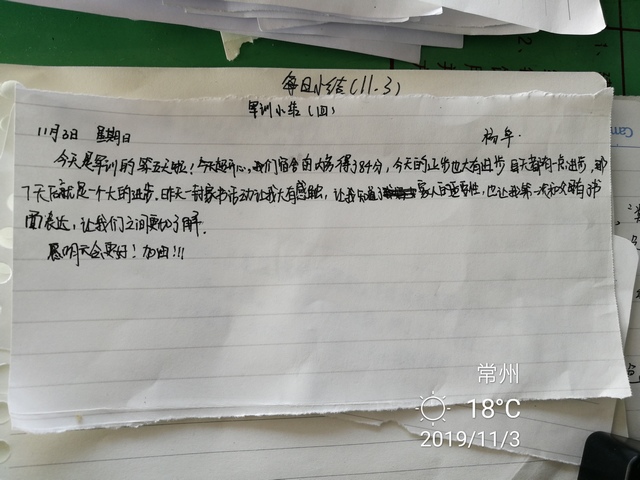 每日小结(11.3)
军训小结(四)
11月3日 星期日
今天是军训的第五天啦!今天超开心,我们宿舍的内务得了84分,今天的正步也大有进步 每天都有一点进步,那
7天后就是一个大的进步。昨天一封家书活动让我大有感触,让我知道了家人的重要性,也让我第一次和父母有了书
面表达,让我们之间更加了解。
愿明天会更好!加油!!!
常州
18°C
2019/11/3